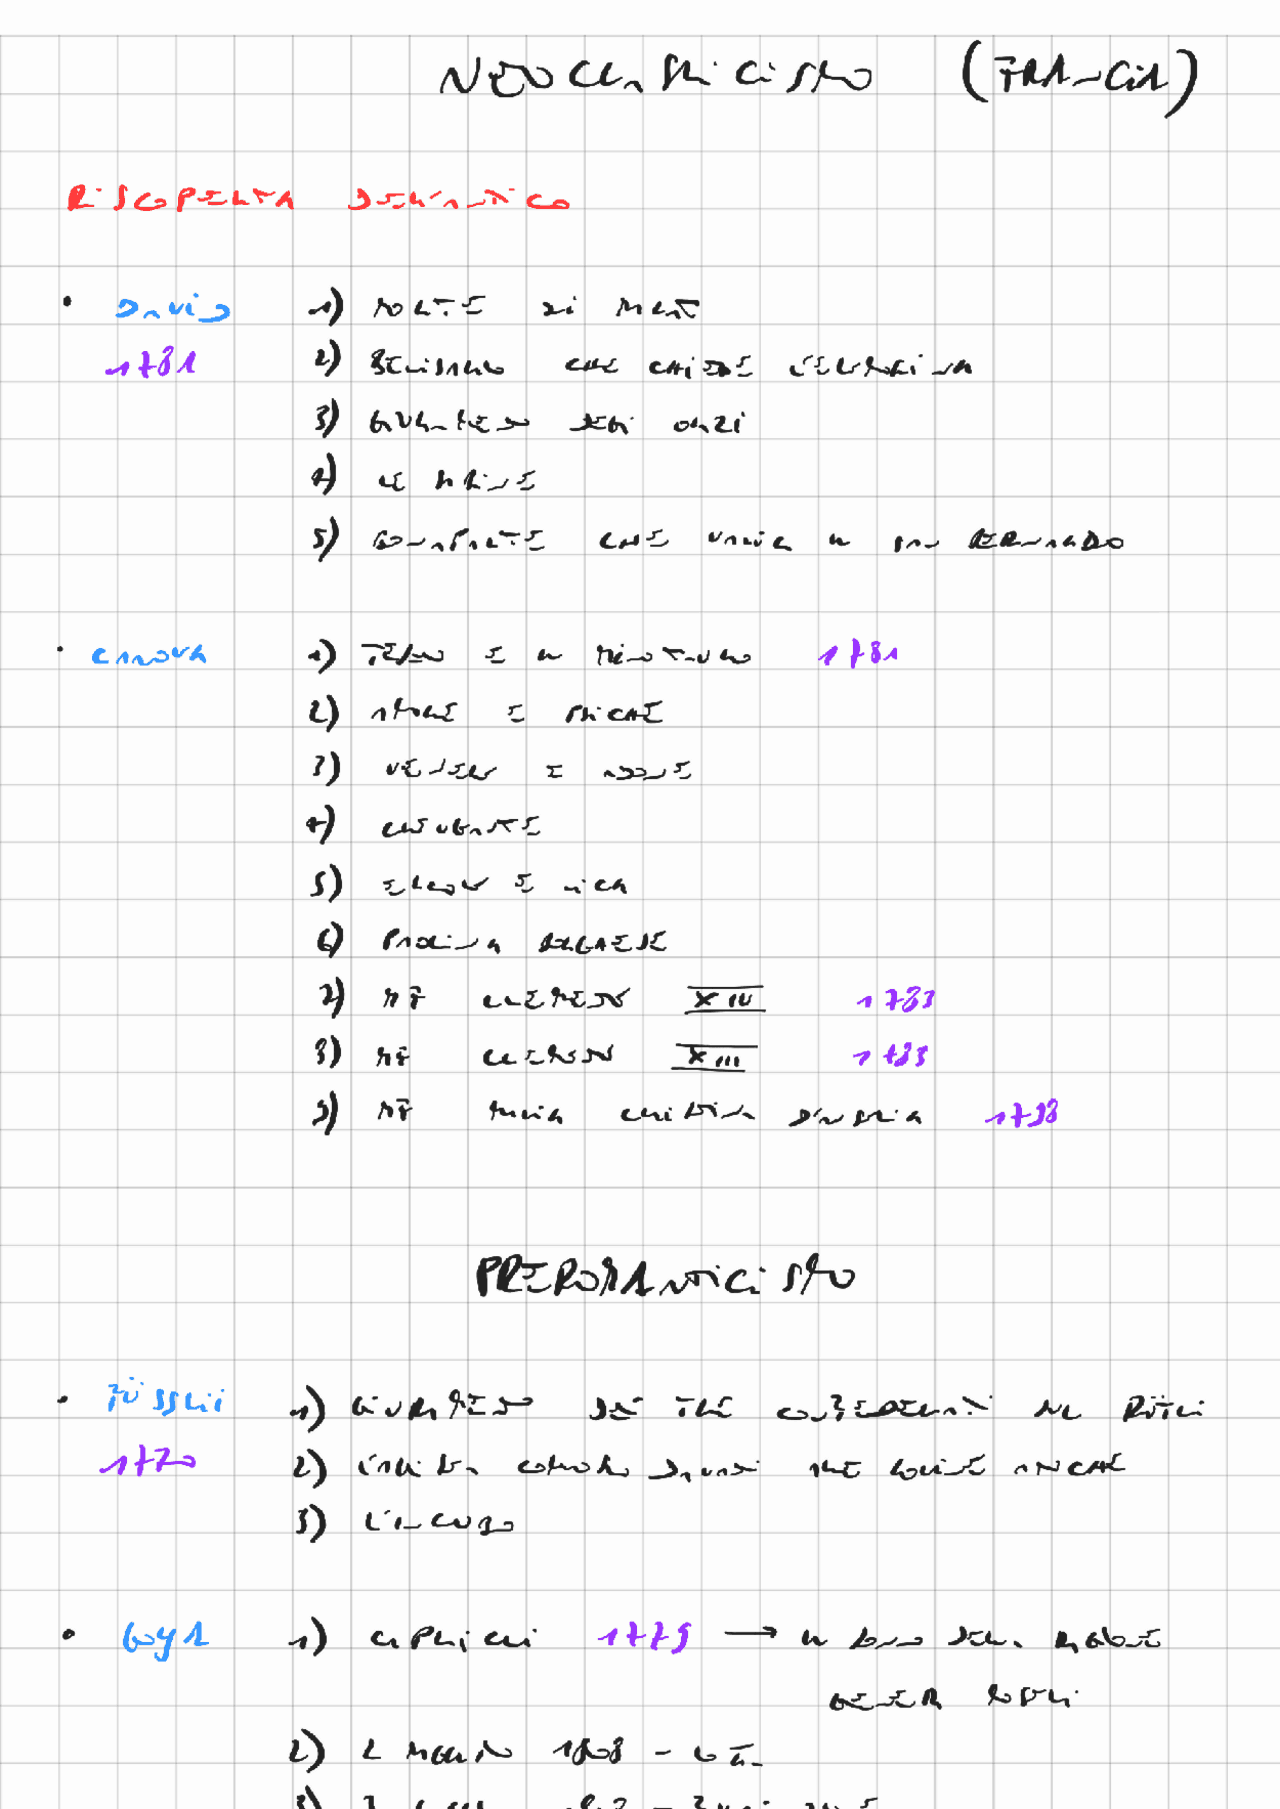 NEOCLASSICISMO (FRANCIA)
RISCOPERTA DELL'ANTICO
• DAVID 1) MORTE DI MARAT
1781 2) BELISARIO CHE CHIEDE L'ELEMOSINA
3) GIURAMENTO DEGLI ORAZI
4) LE SABINE
5) BONAPARTE CHE VALICA IL SAN BERNARDO
• CANOVA 1) TESEO E IL MINOTAURO 1781
2) AMORE E PSICHE
3) VENERE E ADONE
4)
5) ERCOLE E LICA
6) PAOLINA BORGHESE
7) MF CLEMENTE XIV 1783
8) MF CLEMENTE XIII 1783
9) MF MARIA CRISTINA D'AUSTRIA 1798
PREROMANTICISMO
• FÜSSLI 1) GIURAMENTO DEI TRE CONFEDERATI SUL RÜTLI
1770 2) L'ARTISTA COMMOSSO DAVANTI ALLE ROVINE ANTICHE
3) L'INCUBO
• GOYA 1) CAPRICCI 1779 → IL SONNO DELLA RAGIONE
GENERA MOSTRI
2) 2 MAGGIO 1808
3)